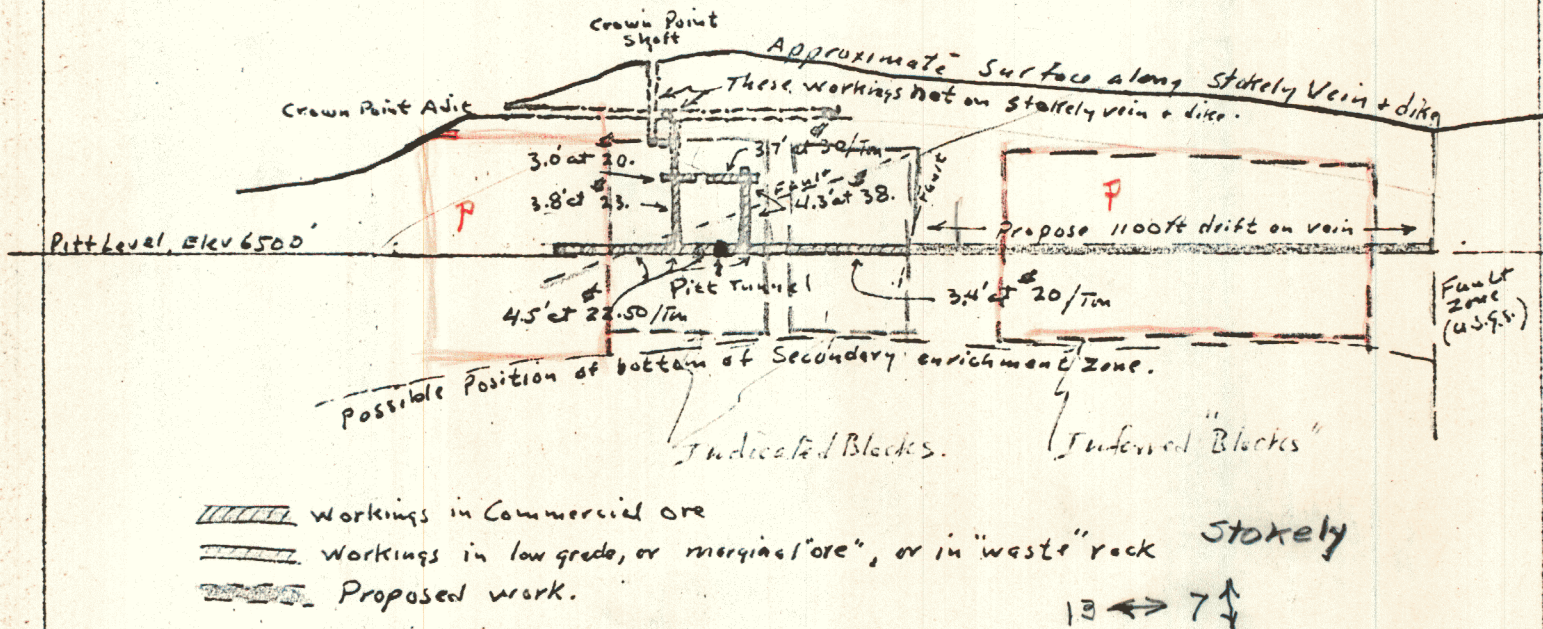 Crown Point
Shaft
Approximate Surface along Stokely Vein + dike
These workings not on Stokely vein + dike.
Crown Point Adit
3.0' at 20.
3.7' at $30/Ton
Fault
3.8' at $23.
4.3' at $38.
Fault
P
P
Propose 1100ft drift on vein
Pitt Level, Elev 6500'
Pitt Tunnel
4.5' at $22.50/Ton
3.4' at $20/Ton
Fault
Zone
(U.S.G.S.)
Possible Position of bottom of Secondary enrichment zone.
Indicated Blocks.
Inferred "Blocks"
Workings in Commercial ore
Workings in low grade, or marginal "ore", or in "waste" rock
Proposed work.
Stokely
13 ↔ 7 ↕